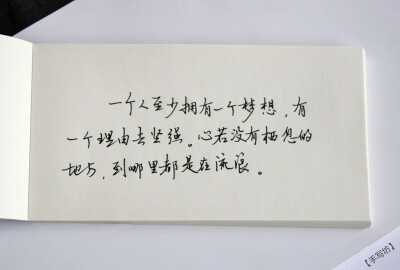 一个人至少拥有一个梦想,有
一个理由去坚强。心若没有栖息的
地方,到哪里都是在流浪。
【手写坊】